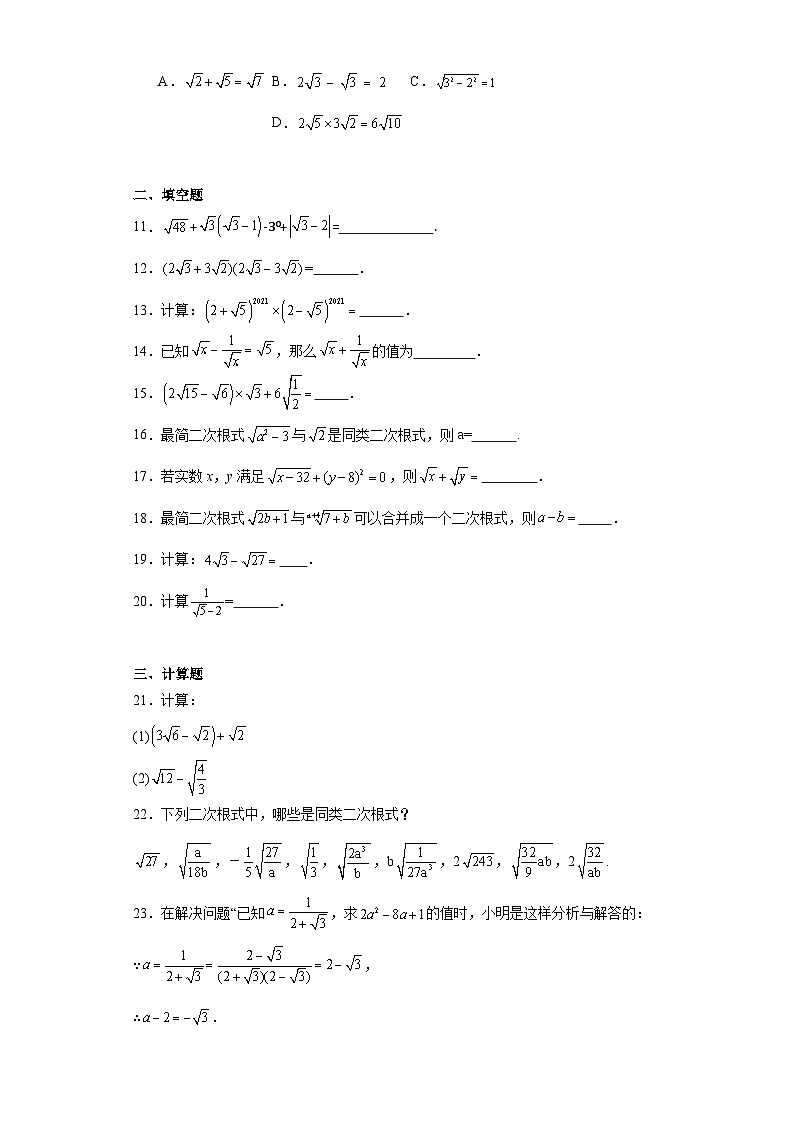 A．√2+√5=√7 B．2√3－√3＝2 C．√(3²－2²)=1
D．2√5×3√2=6√10
二、填空题
11．√48+√3(√3－1)-3⁰+|√3－2|=______________.
12．(2√3+3√2)(2√3－3√2)=_______．
13．计算：(2+√5)²⁰²¹×(2－√5)²⁰²¹=_______．
14．已知√x－1/√x=√5，那么√x+1/√x的值为_________．
15．(2√15－√6)×√3+6√(1/2)=_____．
16．最简二次根式√(a²－3)与√2是同类二次根式，则a=_______．
17．若实数x，y满足√(x－32)+(y－8)²=0，则√x+√y=________．
18．最简二次根式√(2b+1)与ᵃ⁺¹√(7+b)可以合并成一个二次根式，则a－b=_____．
19．计算：4√3－√27=____．
20．计算1/(√5－2)=_______．
三、计算题
21．计算：
(1)(3√6－√2)+√2
(2)√12－√(4/3)
22．下列二次根式中，哪些是同类二次根式？
√27，√(a/18b)，－1/5√(27/a)，√(1/3)，√(2a³/b)，b√(1/27a³)，2√243，√(32/9 ab)，2√(32/ab)．
23．在解决问题“已知a=1/(2+√3)，求2a²－8a+1的值时，小明是这样分析与解答的：
∵a=1/(2+√3)=(2－√3)/((2+√3)(2－√3))=2－√3，
∴a－2=－√3．